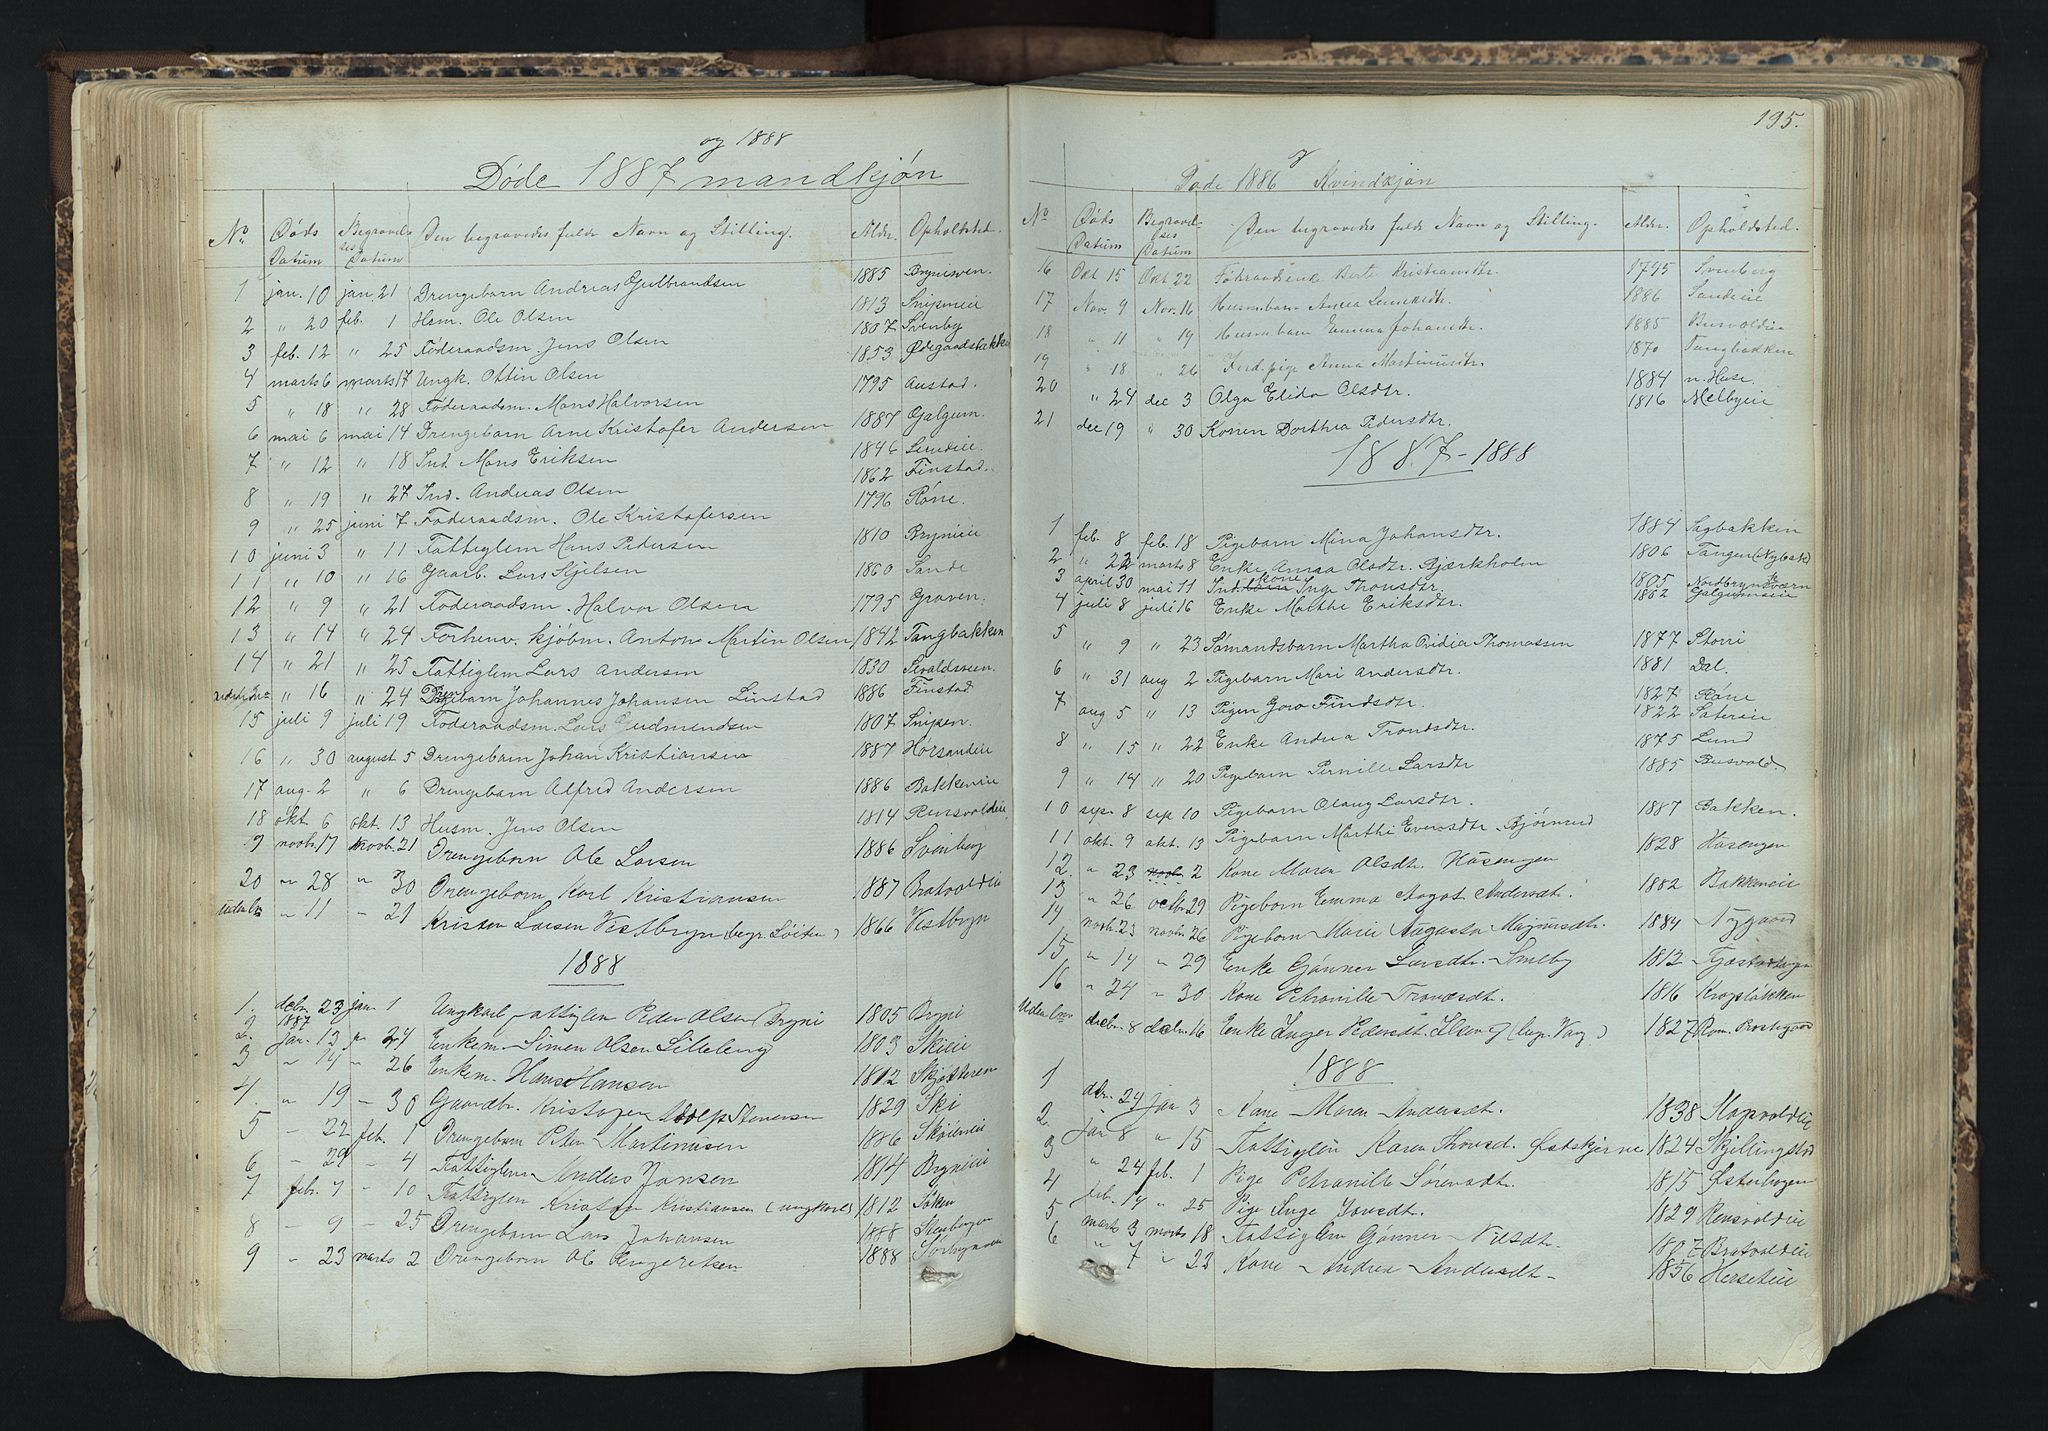 og 1888
Døde 1887 mandkjøn
No Døds Datum Begravelses Datum Den begravedes fulde Navn og Stilling. Alder. Opholdsted.
1 jan. 10 jan. 21 Drengebarn Andreas Gulbrandsen 1885 Brynisven.
2 " 20 feb. 1 Hsm. Ole Olsen 1813 Snipeneie
3 feb. 12 " 25 Føderaadsm. Jens Olsen 1807 Svenby
4 marts 6 marts 17 Ungk. Ottin Olsen 1853 Ødegaardsbakken
5 " 18 " 28 Føderaadsm. Mons Halvorsen 1795 Austad.
6 mai 6 mai 14 Drengebarn Arne Kristofer Andersen 1887 Galgum.
7 " 12 " 18 Ind. Mons Eriksen 1846
8 " 19 " 27 Ind. Andreas Olsen 1862 Finstad.
9 " 25 juni 7 Føderaadsm. Ole Kristofersen 1796 Røne.
10 juni 3 " 11 Fattiglem Hans Pedersen 1810 Brynieie
11 " 10 " 16 Gaarb. Lars Kjelsen 1860 Sande
12 " 9 " 21 Føderaadsm. Halvor Olsen 1795 Graven.
13 " 14 " 24 Forhenv. kjøbm. Anton Martin Olsen 1842 Tangbakken
14 " 21 " 25 Fattiglem Lars Andersen 1830
" 16 " 24 Drgebarn Johannes Johansen Linstad 1886 Finstad
15 juli 9 juli 19 Føderaadsm. Lars Gudmundsen 1807 Snipen.
16 " 30 august 5 Drengebarn Johan Kristiansen 1887 Horsandeie
17 aug. 2 " 6 Drengebarn Alfred Andersen 1886 Bakkeneie
18 okt. 6 okt. 13 Husm. Jens Olsen 1814 Rensvoldeie
9 novbr. 17 novbr. 21 Drengebarn Ole Larsen 1886 Svenberg
20 " 28 " 30 Drengebarn Karl Kristiansen 1887 Bratvoldeie
" 11 - 21 Kristen Larsen Vestbryn (begr. Løiten) 1866 Vestbryn
1888
1. debr. 23 1887 jan. 1 Ungkarl fattiglem Peder Olsen Bryni 1805 Bryni
2. jan. 13 " 24 Enkem. Simen Olsen Lilleeng 1803 Skieie
3 " 14 - 26 Enkem. Hans Hansen 1812 Skjøtteren
4. " 19 - 30 Gaardbr. Kristofer Adolf Stenersen 1829 Ski
5 - 22 feb. 1 Drengebarn Peter Martinusen 1886 Skøieneie
6 - 29 - 4 Fattiglem Anders Jansen 1814 Brynieie
7 feb. 7 - 10 Fattiglem Kristian Kristiansen (ungkarl) 1812
8 - 9 - 25 Drengebarn Lars Johansen 1888 Stenbergen
9 - 23 marts 2 Drengebarn Ole Engeretsen 1888
195.
Døde 1886 Kvindkjøn
No Døds Datum Begravelses Datum Den begravedes fulde Navn og Stilling. Alder. Opholdsted.
16 Okt 15 Okt 22 Føhraadsenke Berte Kristiansdtr. 1795 Svenberg
17 Nov. 9 Nov. 16 Husm.barn Anna 1886 Sandeie
18 " 11 " 19 Husm.barn Emma Johansdtr. 1885
19 " 18 " 26 Ind. pige Anna Martinusdtr. 1870 Tangbakken
20 " 24 dec 3 Olga Elida Olsdtr. 1884 n. Huse.
21 dec 19 " 30 Konen Dorthea Pedersdtr. 1816 Melbyeie
1887-1888
1 feb. 8 feb. 18 Pigebarn Mina Johansdtr. 1884 Sagbakken
2 " 22 marts 8 Enke Anna Olsdtr. Bjærkholm 1806 Tangen (Nybak)
3 april 30 mai 11 Ind. kone Inge Thonsdtr. 1805
4 juli 8 juli 16 Enke Marthe Eriksdtr. 1802 Galgumseie
5 " 9 " 23 Sømandsbarn Martha Ovidia Thomassen 1877 Storri
6 " 31 aug 2 Pigebarn Mari Andersdtr. 1881 Dal
7 aug 5 " 13 Pigen Goro Findsdtr. 1827 Røne
8 " 15 " 22 Enke Andrea Trondsdtr. 1822 Sætereie
9 " 14 " 20 Pigebarn Pernille Larsdtr 1875 Lund
10 sep. 8 sep 10 Pigebarn Olaug Larsdtr. 1885 Rusvold.
11 okt. 9 okt. 13 Pigebarn Marthe Evensdtr. Bjørnerud 1887 Bakken.
12. " 23 novbr. 2 Kone Maren Olsdtr. Haasengen 1828 Haasengen
13 " 26 octbr. 29 Pigebarn Emma Aagot Andersdtr. 1882 Bakkeneie
14 novb. 23 novbr. 26 Pigebarn Marie Augusta Magnusdtr. 1884 Nygaard
15 " 14 " 29 Enke Gønner Larsdtr. Smeby 1812
16 " 24 " 30 Kone Petronille Tronsdtr. 1816 Krogsløkken
Udenbr. decbr. 8 decbr. 16 Enke Inger Pedersdt. Ilseng (begr. Vang) 1827 Rom. Prestegaard
1888
1 dcr. 24 jan 3 Kone Maren Andersdt. 1838
2. jan 8 " 15 Fattiglem Karen Thovsd. Østskjerne 1824 Skjellingstad
3 " 24 feb. 1 Pige Petronille Sørensdt. 1815 Østerhagen
4 feb. 14 " 25 Pige Inge Jonsdt. 1829 Rensvoldeie
5 marts 3 marts 18 Fattiglem Gønner Nilsdt. 1807 Bratvoldeie
6 " 7 " 23 Kone Andrea Andersdt. 1856 Herseteie